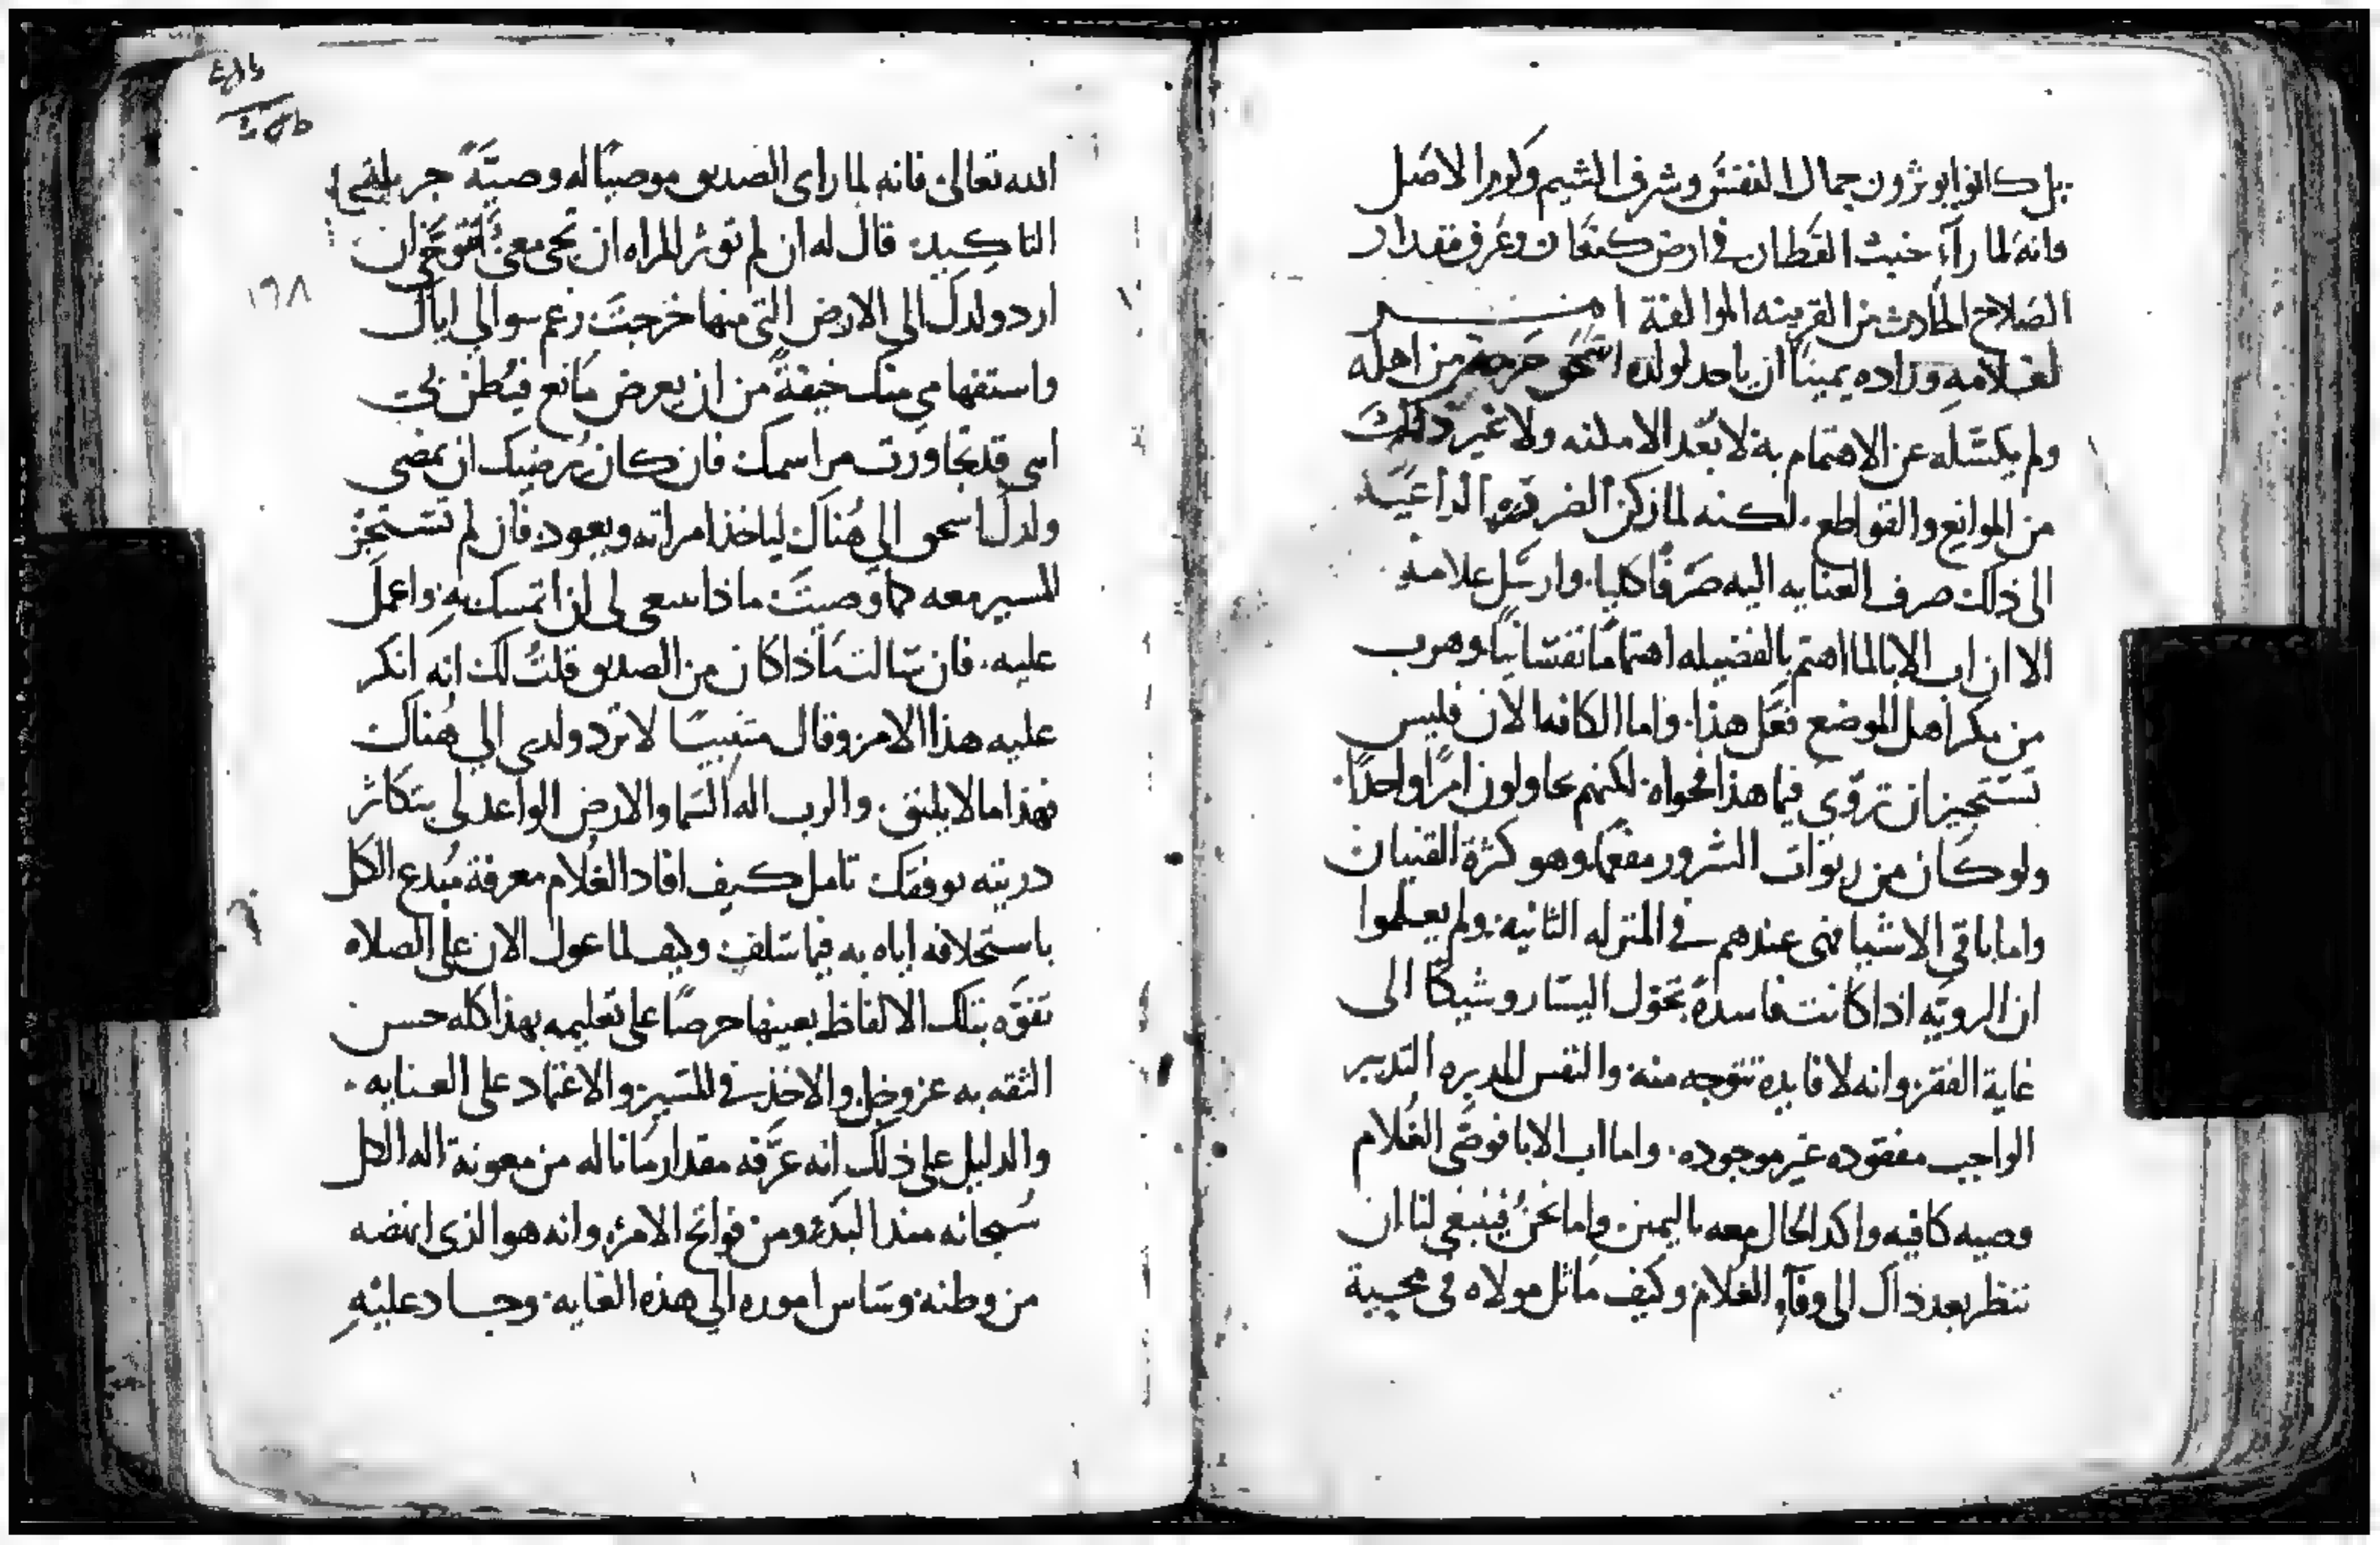 بل كانوا يوثرون جمال النفس وشرف الشيم وكرم الاصل
وانه لما راآء خبث القطان في ارض كنعان وعرف مقدار
الصلاح الحادث من القرينه الموالفة ا
لغلامه وزاده يمينًا ان ياخد لولده اسحق حرمة من اهله
ولم يكسّله عن الاهتمام به لا بُعد الامكنه ولا غير ذلك
من الموانع والقواطع. لكنه لما زكن الضروره الداعيَه
الى ذلك صرف العنايه اليه صَرفًا كليا. وارسَل غلامه
الا ان اب الابا لما اهتم بالفضيله اهتمامًا نفسَانيًا وهرب
من مكر اهل الموضع فعَل هذا. واما الكافه الان فليس
تستجيز ان تروّي فيما هذا فحواه. لكنهم يحاولون امرًا واحدًا.
ولو كان من ربوات الشرور مفعمًا وهو كثرة القنيان
واما باقي الاشيا فهى عندهم في المنزله الثانيه. ولم يعلموا
ان الرويّه اذا كانت فاسدة تحوّل اليسَار وشيكًا الى
غاية الفقر. وانه لا فايدة تتوجه منه. والنفس المديره التدبير
الواجب مفقوده غير موجوده. واما اب الابا فوصّى الغُلام
وصيه كافيه واكد الحال معه باليمين. واما نحنُ فينبغي لنا ان
ننظر بعد ذاك الى وفآءِ الغلام وكيف ماثل مولاه في محبية
الله تعالى فانه لما راى الصديق موصيًا له وصيّةً جزيلة
التاكيد قال له ان لم توثر المراه ان تجى معى اتتوخى ان
ارد ولدك الى الارض التى منها خرجتَ زعم سوالي اياك
واستفهامى منك خيفةً من ان يعرض مَانع فيُظن بى
انى قد تجاوزت مراسمك فان كان يُرضيك ان يمضى
ولدك اسحق الى هُناك لياخذ امراته ويعود فان لم تستجز
المسير معه كما وصيتَ ماذا ينبغى لى ان اتمسك به واعمل
عليه. فان سَالت مَاذا كان من الصديق قلتُ لك انه انكر
عليه هذا الامر وقال لا ترد ولدى الى هُناك
فهذا ما لا يليق. والرب اله السَما والارض الواعد لى بتكاثر
دريته يوفقك تامل كيف افاد الغُلام معرفة مُبدع الكل
باستحلافه اياه به فيما سَلف وكيف لما عول الان على الصلاه
تفوَّه بتلك الالفاظ بعينها حرصًا على تعليمه بهذا كله حسن
الثقه به عز وجل والاخذ في المسير والاعتماد على العنايه.
والدليل على ذلك انه عرَّفه مقدار مَا ناله من معونة اله الكل
سُبحانه منذ البدء ومن فواتح الامر. وانه هو الذى انهضه
من وطنه وسَاس اموره الى هذه الغايه. وجاد عليْهِ
١٦٨